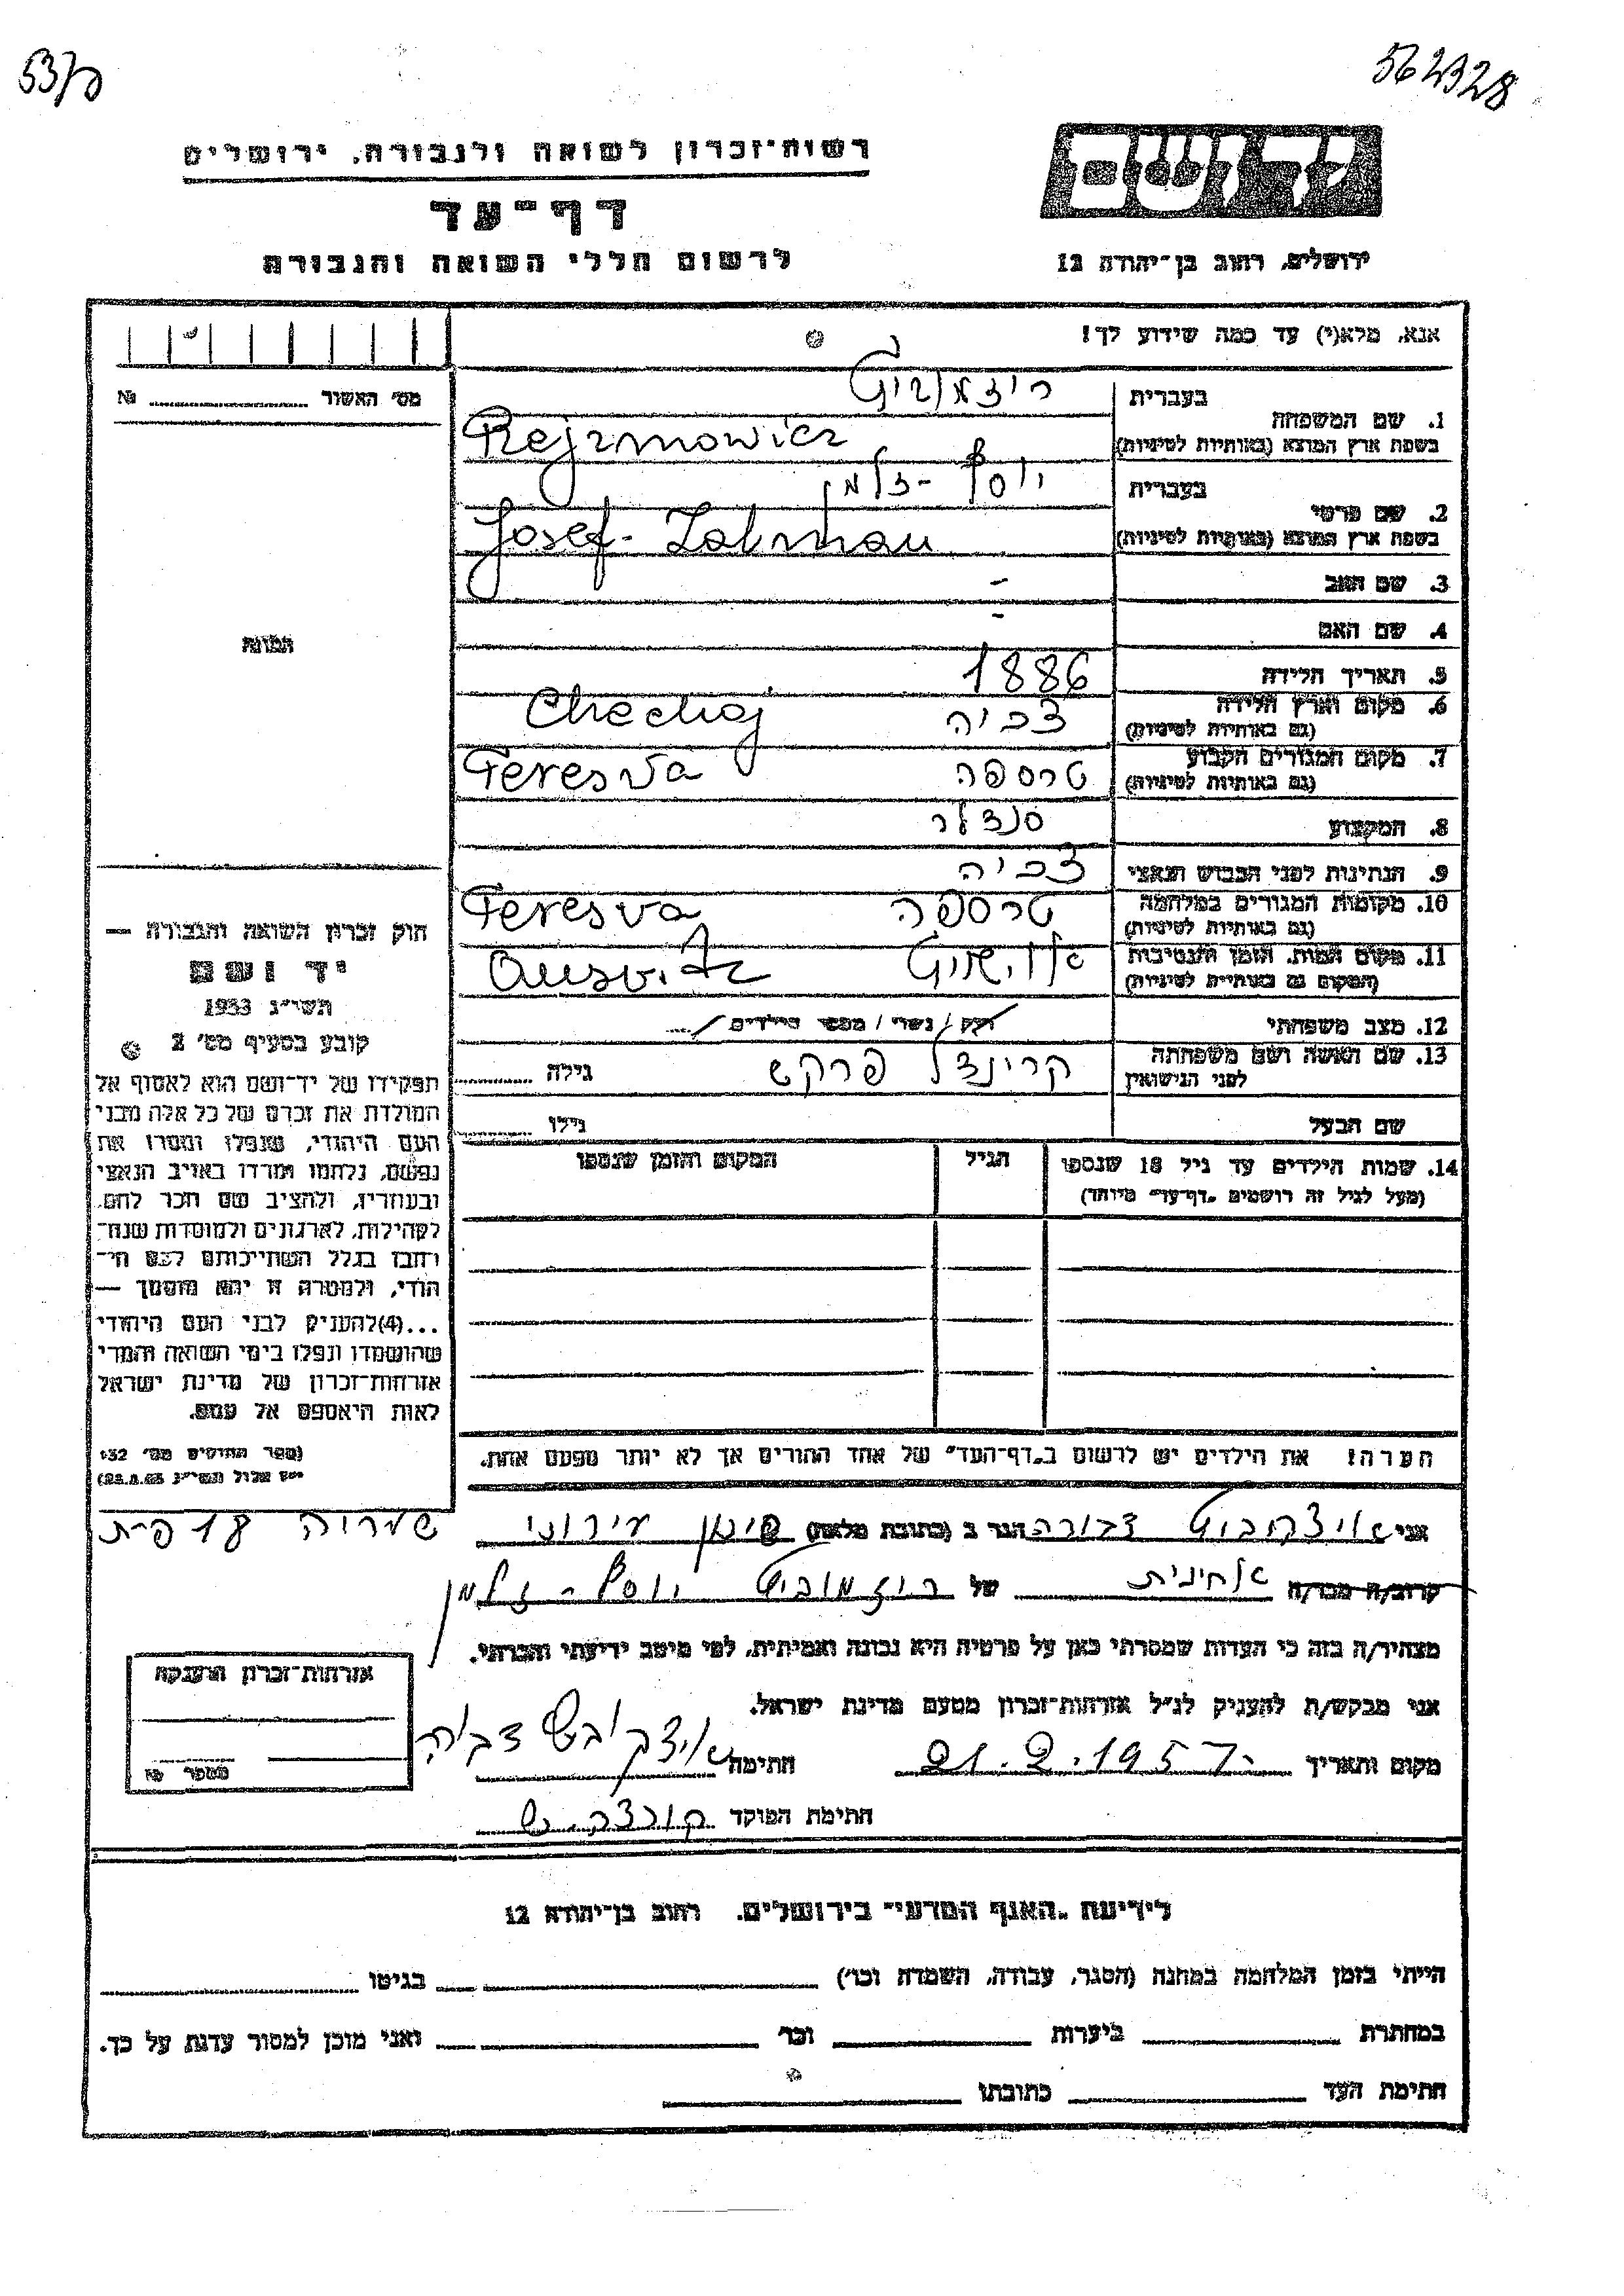 562328
53/ס
יד ושם
רשות־זכרון לשואה ולגבורה, ירושלים
דף־עד
לרשום חללי השואה והגבורה
ירושלים, רחוב בן־יהודה 12
אנא, מלא(י) עד כמה שידוע לך!
מס׳ האשור № 
1. שם המשפחה
בעברית ריזמוביץ
בשפת ארץ המוצא (באותיות לטיניות) Rejzmowicz
2. שם פרטי
בעברית יוסף - זלמן
בשפת ארץ המוצא (באותיות לטיניות) Josef - Zalman
3. שם האב -
4. שם האם -
5. תאריך הלידה 1886
6. מקום וארץ הלידה צכיה
(גם באותיות לטיניות)
7. מקום המגורים הקבוע טרספה Teresva
(גם באותיות לטיניות)
8. המקצוע סנדלר
9. הנתינות לפני הכבוש הנאצי צכיה
10. מקומות המגורים במלחמה טרספה Teresva
(גם באותיות לטיניות)
11. מקום המות, הזמן והנסיבות
(המקום גם באותיות לטיניות)
12. מצב משפחתי רוק / נשוי / מספר הילדים
13. שם האשה ושם משפחתה
לפני הנישואין קרינדל פרקש גילה
שם הבעל גילו
14. שמות הילדים עד גיל 18 שנספו
(מעל לגיל זה רושמים „דף־עד״ מיוחד)
הגיל
המקום והזמן שנספו
הערה! את הילדים יש לרשום ב„דף־העד״ של אחד ההורים אך לא יותר מפעם אחת.
התמונה
חוק זכרון השואה והגבורה —
יד ושם
תשי״ג 1953
קובע בסעיף מס׳ 2
תפקידו של יד־ושם הוא לאסוף אל
המולדת את זכרם של כל אלה מבני
העם היהודי, שנפלו ומסרו את
נפשם, נלחמו ומרדו באויב הנאצי
ובעוזריו, ולהציב שם וזכר להם,
לקהילות, לארגונים ולמוסדות שנח־
רבו בגלל השתייכותם לעם הי־
הודי, ולמטרה זו יהא מוסמך —
...(4)להעניק לבני העם היהודי
שהושמדו ונפלו בימי השואה והמרי
אזרחות־זכרון של מדינת ישראל
לאות היאספם אל עמם.
(ספר החוקים מס׳ 132
י״ז אלול תשי״ג 28.8.53)
אני איצקוביץ דבורה הגר ב (כתובת מלאה)
קרוב/ה מכר/ה אחינית של ריזמוביץ יוסף - זלמן
מצהיר/ה בזה כי העדות שמסרתי כאן על פרטיה היא נכונה ואמיתית, לפי מיטב ידיעתי והכרתי.
אני מבקש/ת להעניק לנ״ל אזרחות־זכרון מטעם מדינת ישראל.
מקום ותאריך 21.2.1957 חתימה איצקוביץ דבורה
חתימת הפוקד
אזרחות־זכרון הוענקה
מספר №
לידיעת „האגף המדעי״ בירושלים, רחוב בן־יהודה 12
הייתי בזמן המלחמה במחנה (הסגר, עבודה, השמדה וכו׳) בגיטו
במחתרת ביערות וכו׳ ואני מוכן למסור עדות על כך.
חתימת העד כתובתו